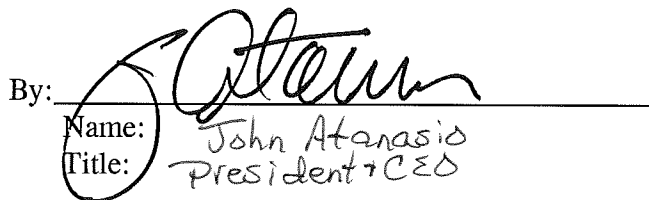 By:
Name: John Atanasio
Title: President + CEO